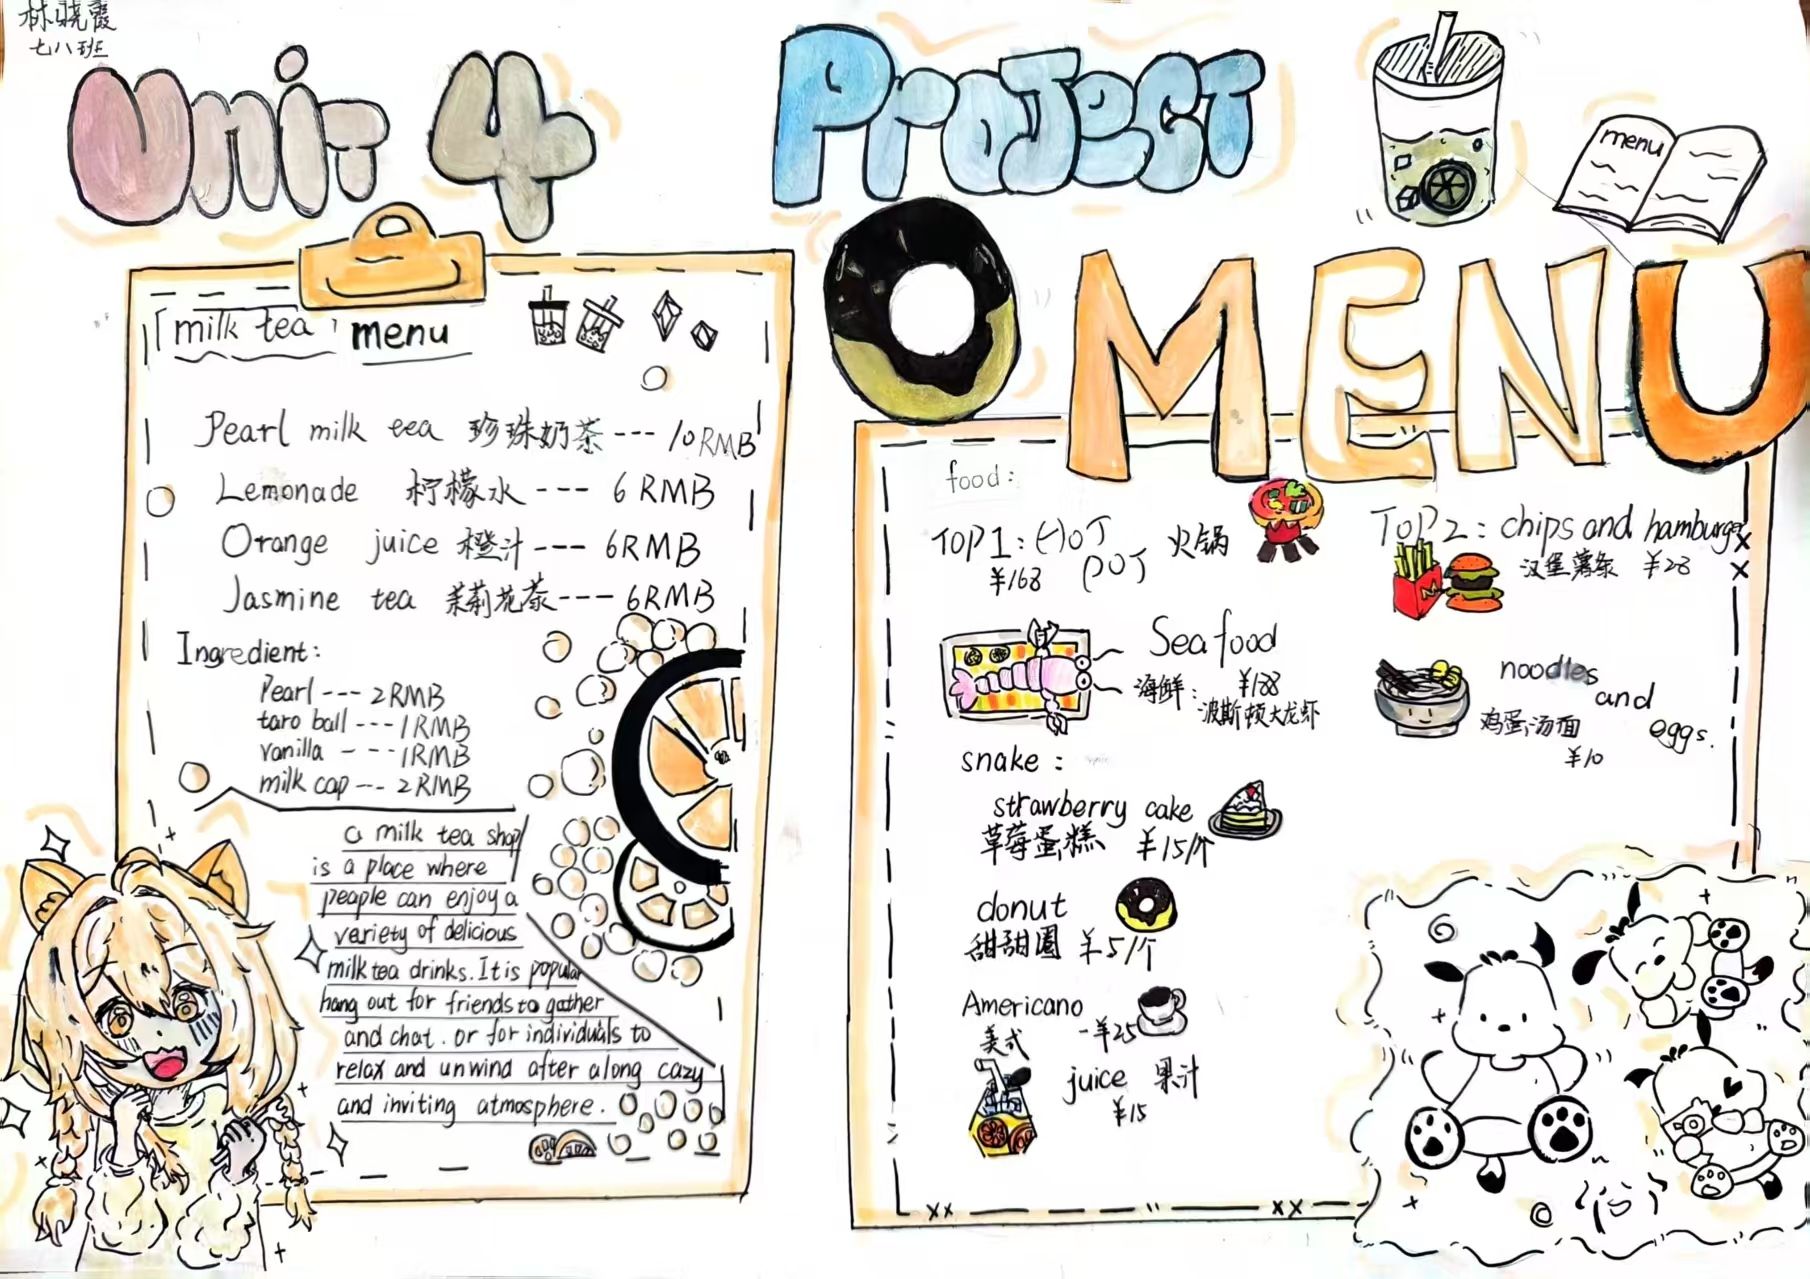 林晓霞
七八班
Unit 4
Project
menu
MENU
milk tea menu
Pearl milk tea 珍珠奶茶 --- 10RMB
Lemonade 柠檬水 --- 6 RMB
Orange juice 橙汁 --- 6RMB
Jasmine tea 茉莉花茶 --- 6RMB
Ingredient:
Pearl --- 2RMB
taro ball --- 1RMB
vanilla --- 1RMB
milk cap --- 2RMB
a milk tea shop
is a place where
people can enjoy a
variety of delicious
milk tea drinks. It is popular
hang out for friends to gather
and chat. or for individuals to
relax and unwind after along cazy
and inviting atmosphere.
food:
TOP 1: HOT POT 火锅
¥168
TOP 2: chips and hamburger
汉堡薯条 ¥28
Sea food
海鲜: ¥188
波斯顿大龙虾
noodles and eggs.
鸡蛋汤面
¥10
snake:
strawberry cake
草莓蛋糕 ¥15/个
donut
甜甜圈 ¥5/个
Americano
美式 -¥25
juice 果汁
¥15